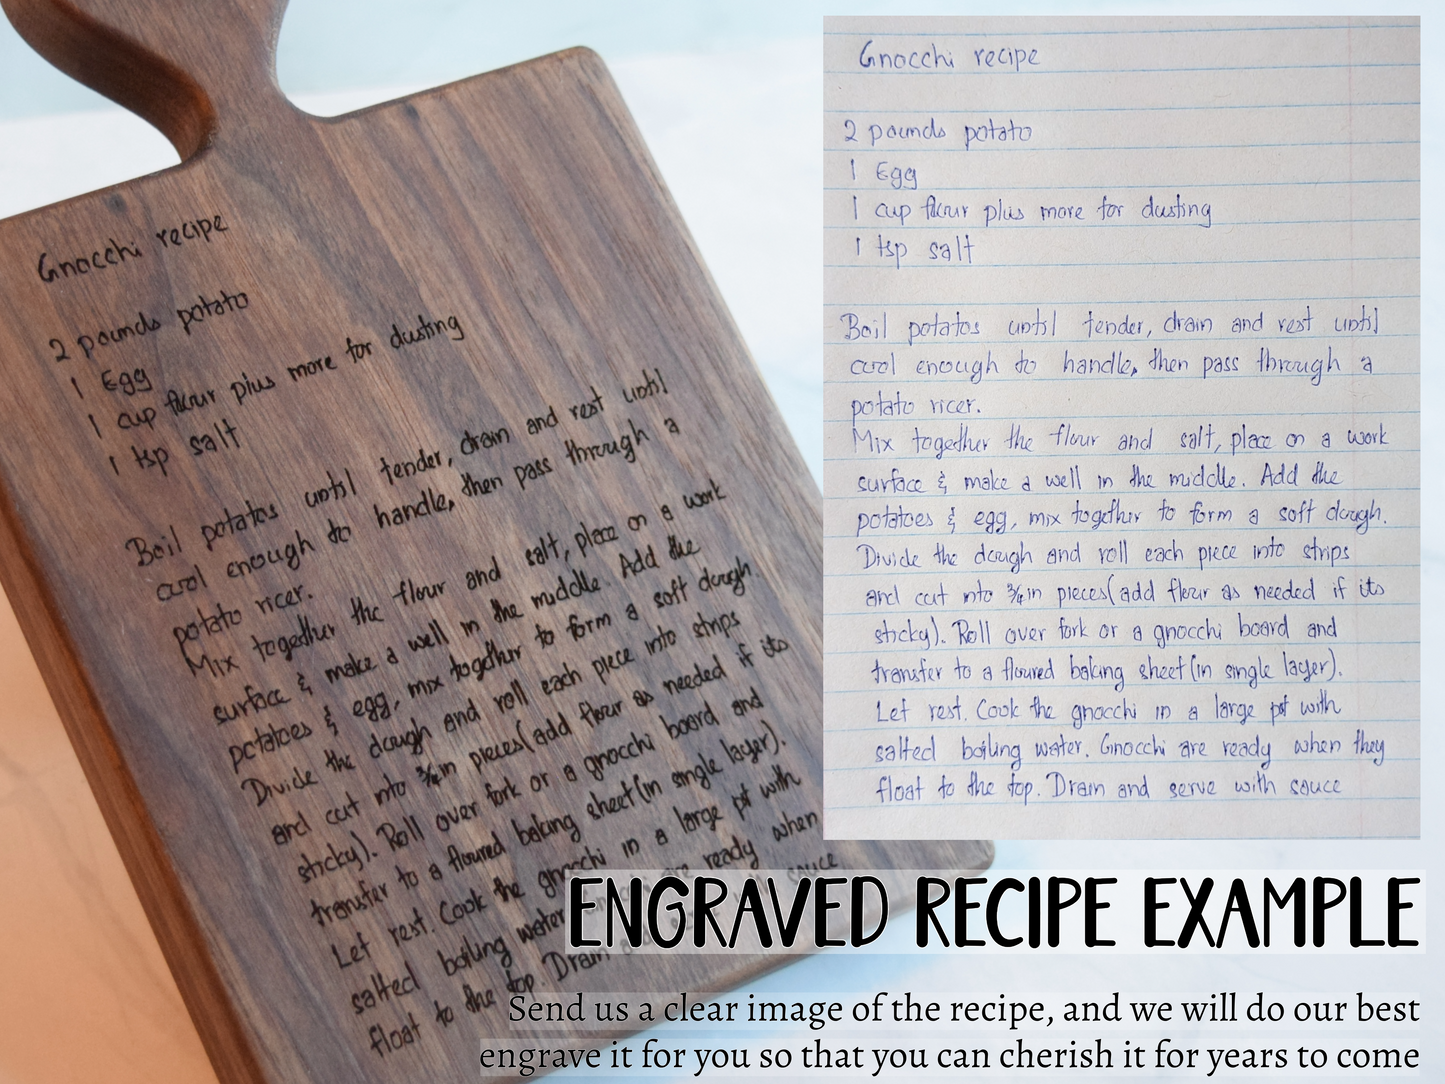 Gnocchi recipe
2 pounds potato
1 Egg
1 cup flour plus more for dusting
1 tsp salt
Boil potatos until tender, drain and rest until
cool enough to handle, then pass through a
potato ricer.
Mix together the flour and salt, place on a work
surface & make a well in the middle. Add the
potatoes & egg, mix together to form a soft dough.
Divide the dough and roll each piece into strips
and cut into ¾ in pieces(add flour as needed if its
sticky). Roll over fork or a gnocchi board and
transfer to a floured baking sheet(in single layer).
Let rest. Cook the gnocchi in a large pot with
salted boiling water.
float to the top. Drain
sauce
Gnocchi recipe
2 pounds potato
1 Egg
1 cup flour plus more for dusting
1 tsp salt
Boil potatos until tender, drain and rest until
cool enough to handle, then pass through a
potato ricer.
Mix together the flour and salt, place on a work
surface & make a well in the middle. Add the
potatoes & egg, mix together to form a soft dough.
Divide the dough and roll each piece into strips
and cut into ¾ in pieces(add flour as needed if its
sticky). Roll over fork or a gnocchi board and
transfer to a floured baking sheet(in single layer).
Let rest. Cook the gnocchi in a large pot with
salted boiling water. Gnocchi are ready when they
float to the top. Drain and serve with sauce
ENGRAVED RECIPE EXAMPLE
Send us a clear image of the recipe, and we will do our best
engrave it for you so that you can cherish it for years to come